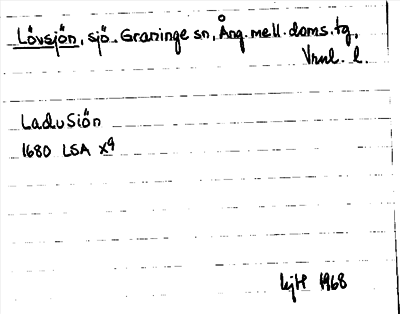 Lövsjön, sjö. Graninge sn, Ång. mell. doms. tg.
Vrnl. l.
LaduSiön
1680 LSA X9
1968